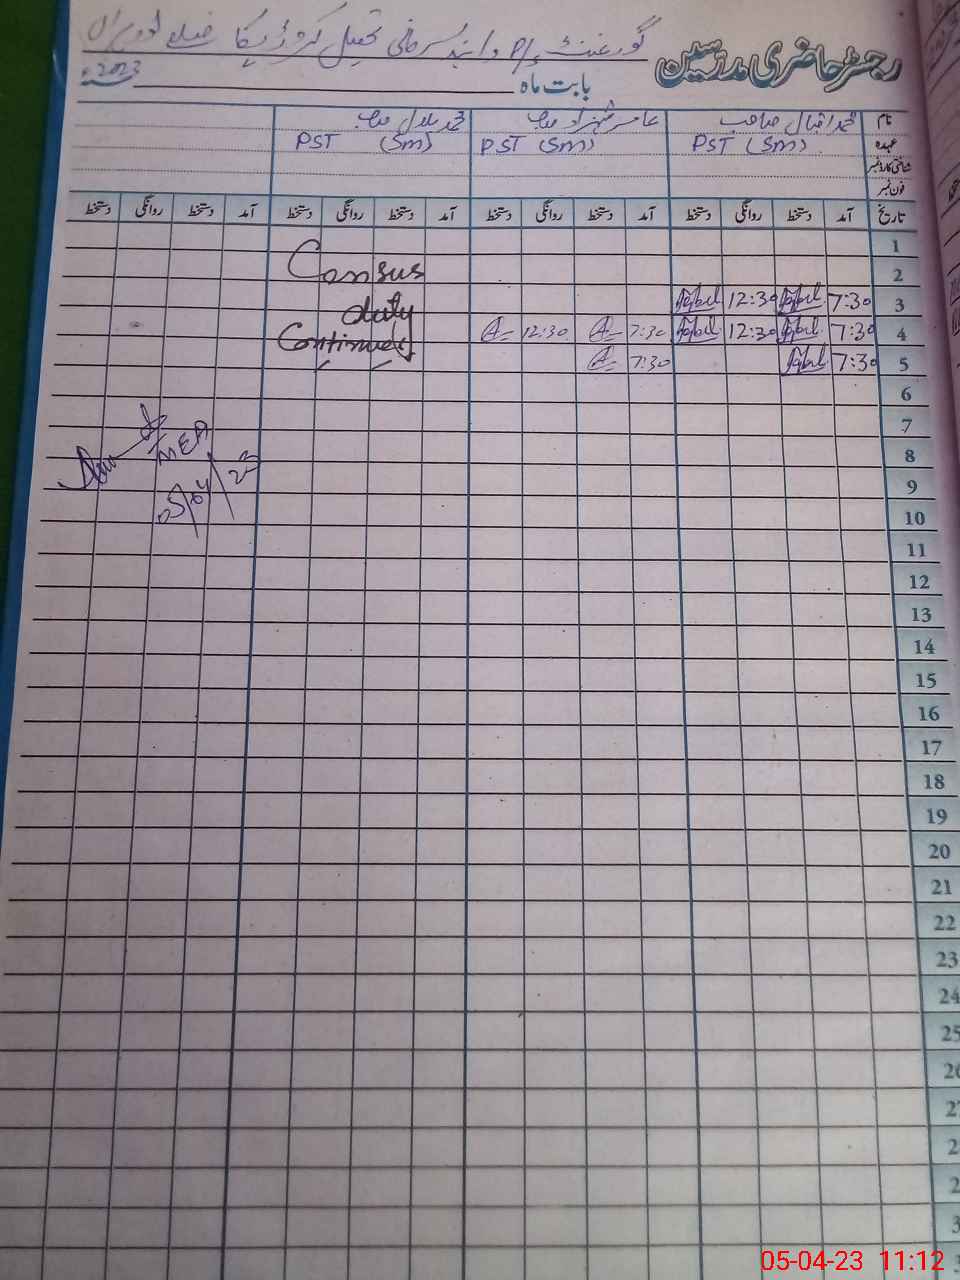 رجسٹر حاضری مدرسین
گورنمنٹ P/S
تحصیل کہروڑ پکا ضلع لودہراں
بابت ماہ 2023ء
نام محمد اقبال صاحب عامر شہزاد صاحب محمد بلال صاحب
عہدہ PST (Sm) PST (Sm) PST (Sm)
شناختی کارڈ نمبر
فون نمبر
تاریخ آمد دستخط روانگی دستخط آمد دستخط روانگی دستخط آمد دستخط روانگی دستخط آمد دستخط روانگی دستخط
1
2 Census
3 7:30 Iqbal 12:30 Iqbal duty
4 7:30 Iqbal 12:30 Iqbal 7:30 A 12:30 A Continued
5 7:30 Iqbal 7:30 A
6
7
8 MEA
9
10 05/04/23
11
12
13
14
15
16
17
18
19
20
21
22
23
24
25
26
27
2
2
3
05-04-23 11:12